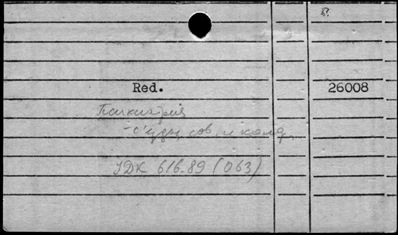 Red. 26008
Психиатрия
- съезды, сов. и конф.
УДК 616.89 (063)